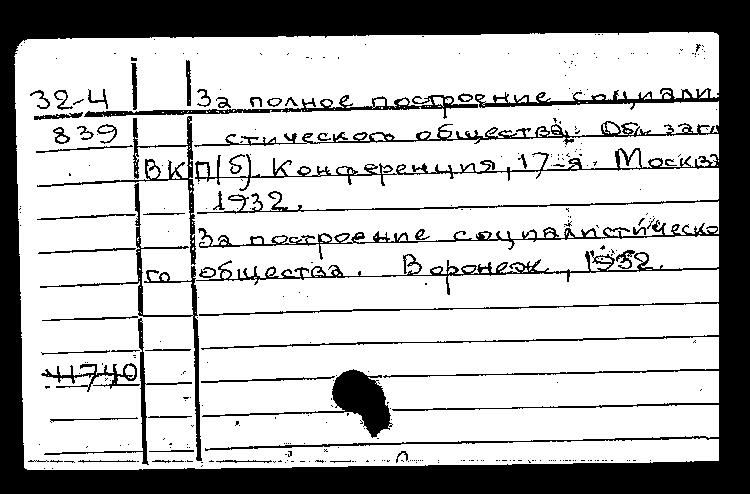 32-4 За полное построение социали-
839 стического общества. Обл. загл
ВКП(б). Конференция, 17-я. Москва
1932.
За построение социалистическо
го общества. Воронеж, 1932.
44740